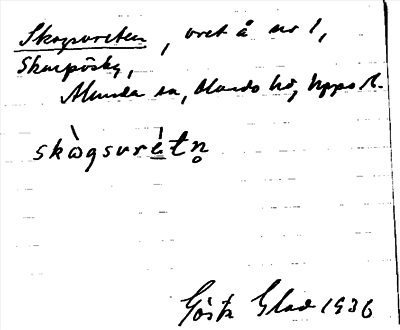 Skogsvreten, vret å nr 1,
Skarpösby,
Munsö sn, hd, Upps. l.
skògsvrètn̥
Gösta Glad 1936